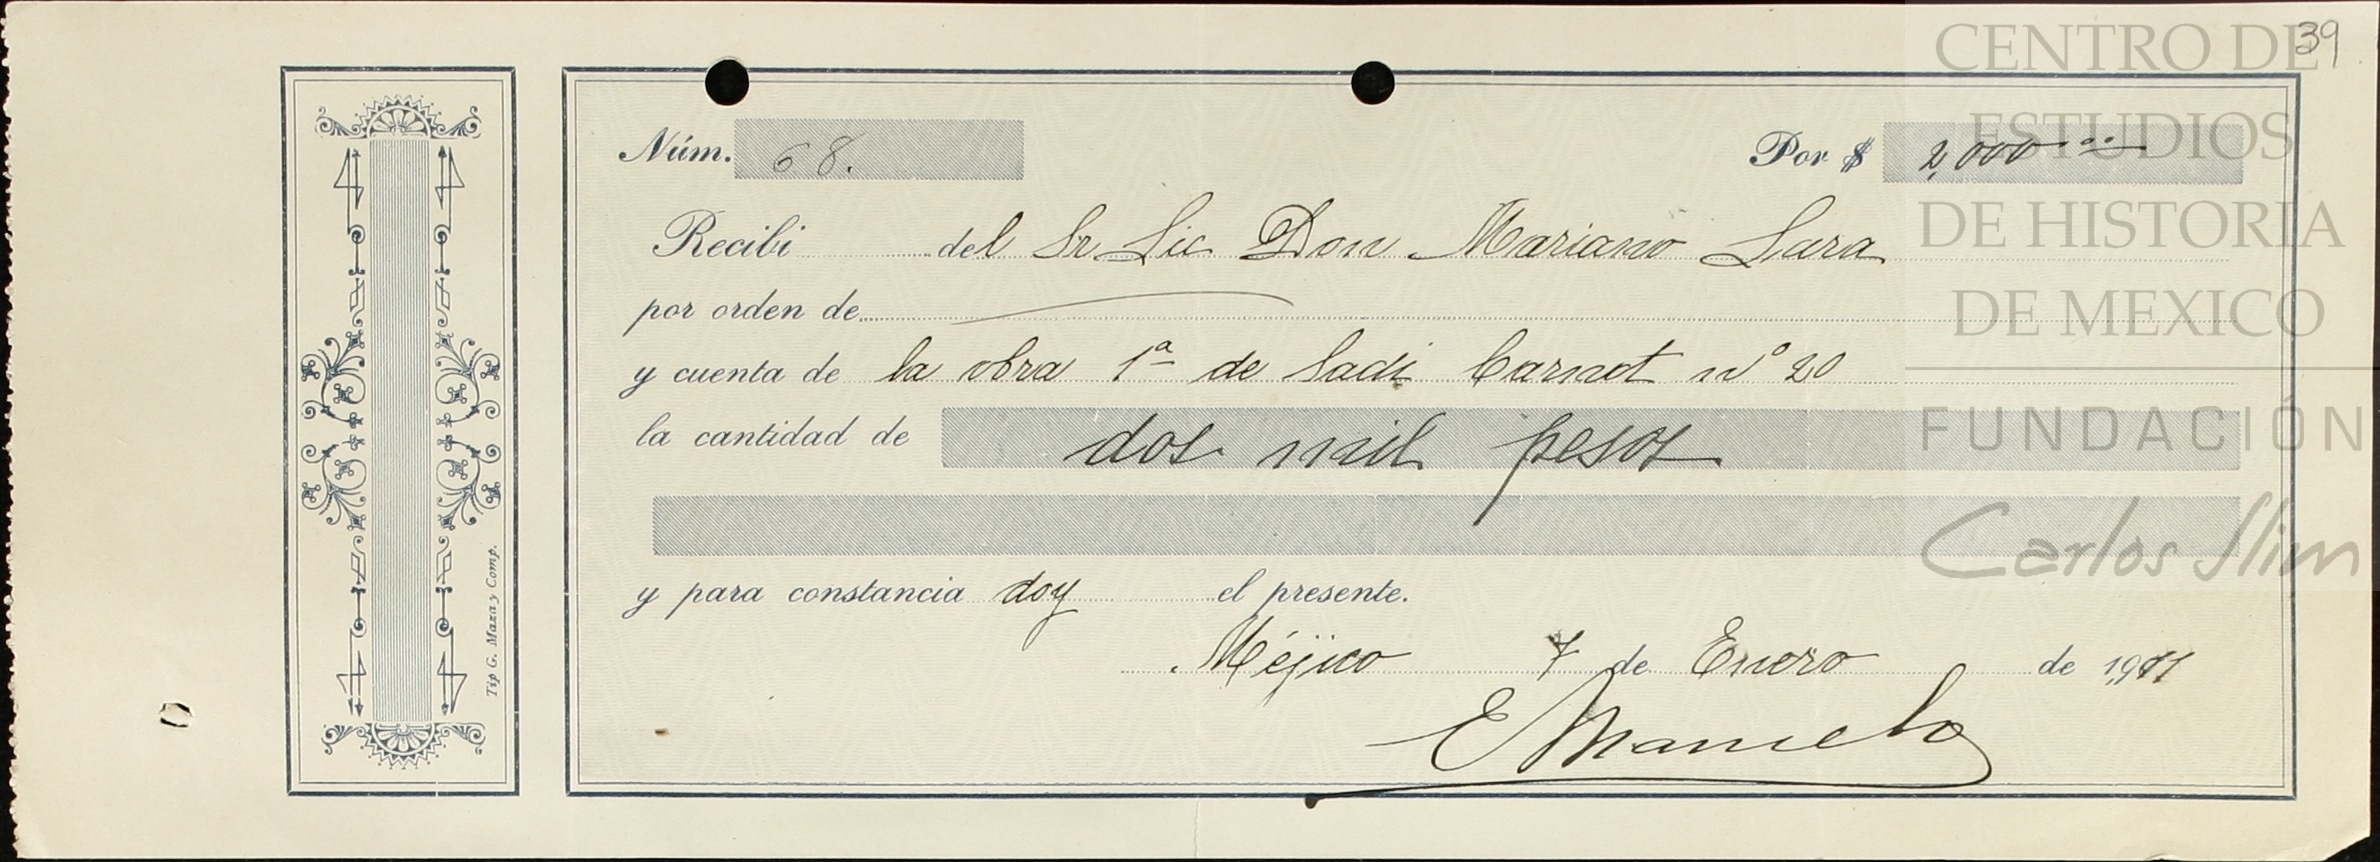 39
CENTRO DE
ESTUDIOS
DE HISTORIA
DE MEXICO
FUNDACIÓN
Carlos Slim
Tip G. Maza y Comp.
Núm. 68. Por $ 2,000.00
Recibí del Sr Lic Don Mariano Lara
por orden de
y cuenta de la obra 1ª de Sadi Carnot nº 20
la cantidad de dos mil pesos
y para constancia doy el presente.
Méjico 7 de Enero de 1911
E